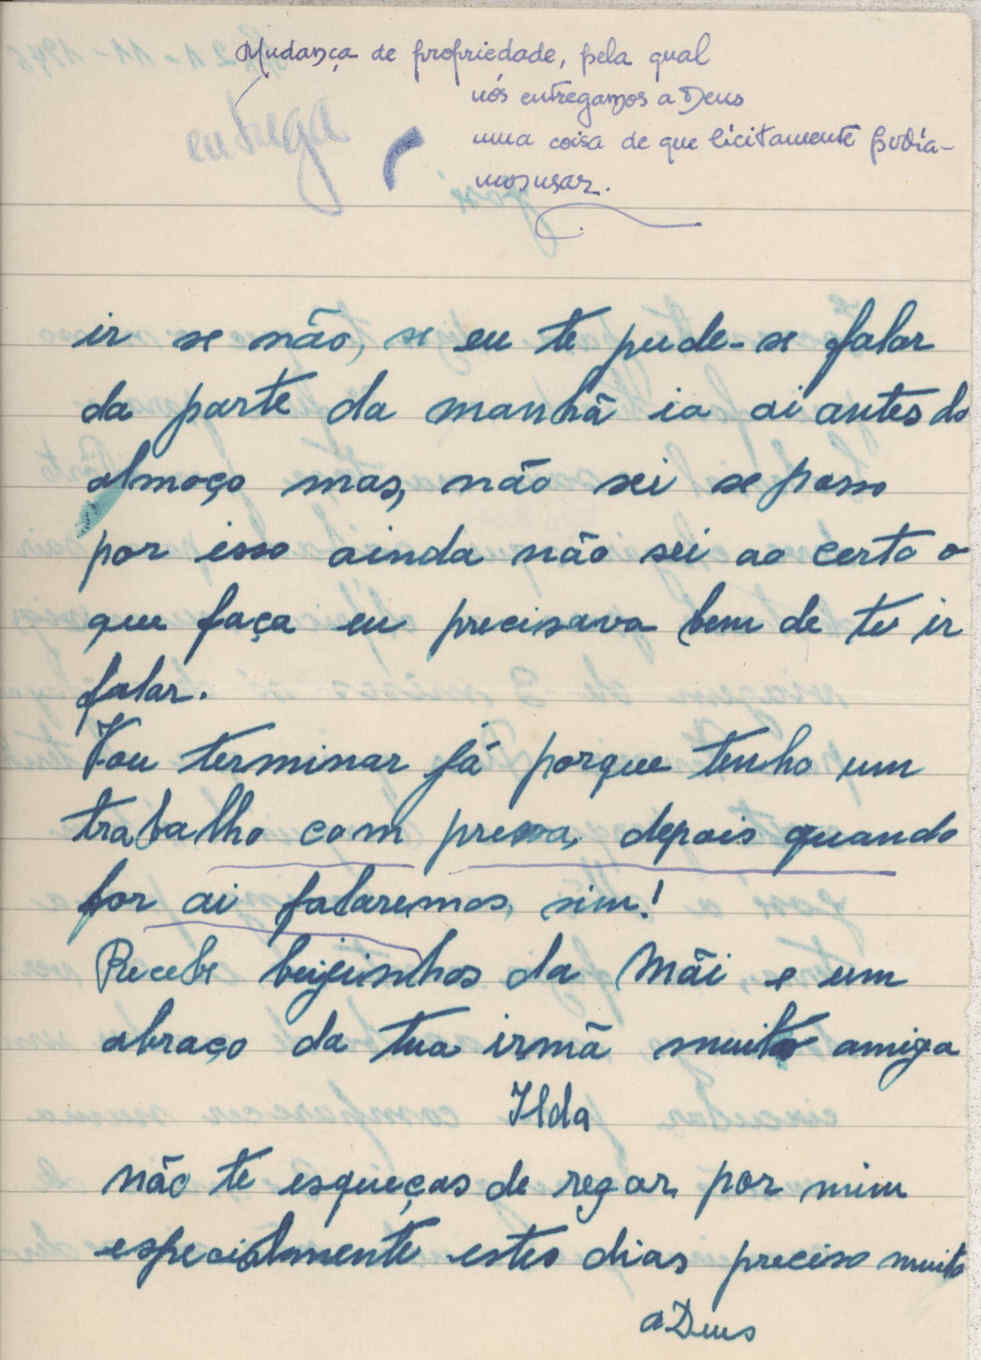 Mudança de propriedade, pela qual
nós entregamos a Deus
entrega
uma coisa de que licitamente podía-
mos usar.
ir se não, se eu te pude-se falar
da parte da manhã ia ai antes do
almoço mas, não sei se posso
por isso ainda não sei ao certo o
que faça eu precisava bem de te ir
falar.
Vou terminar já porque tenho um
trabalho com pressa, depois quando
for ai falaremos, sim!
Recebe beijinhos da Mãi e um
abraço da tua irmã muito amiga
Ilda
não te esqueças de regar por mim
especialmente estes dias preciso muito
aDeus